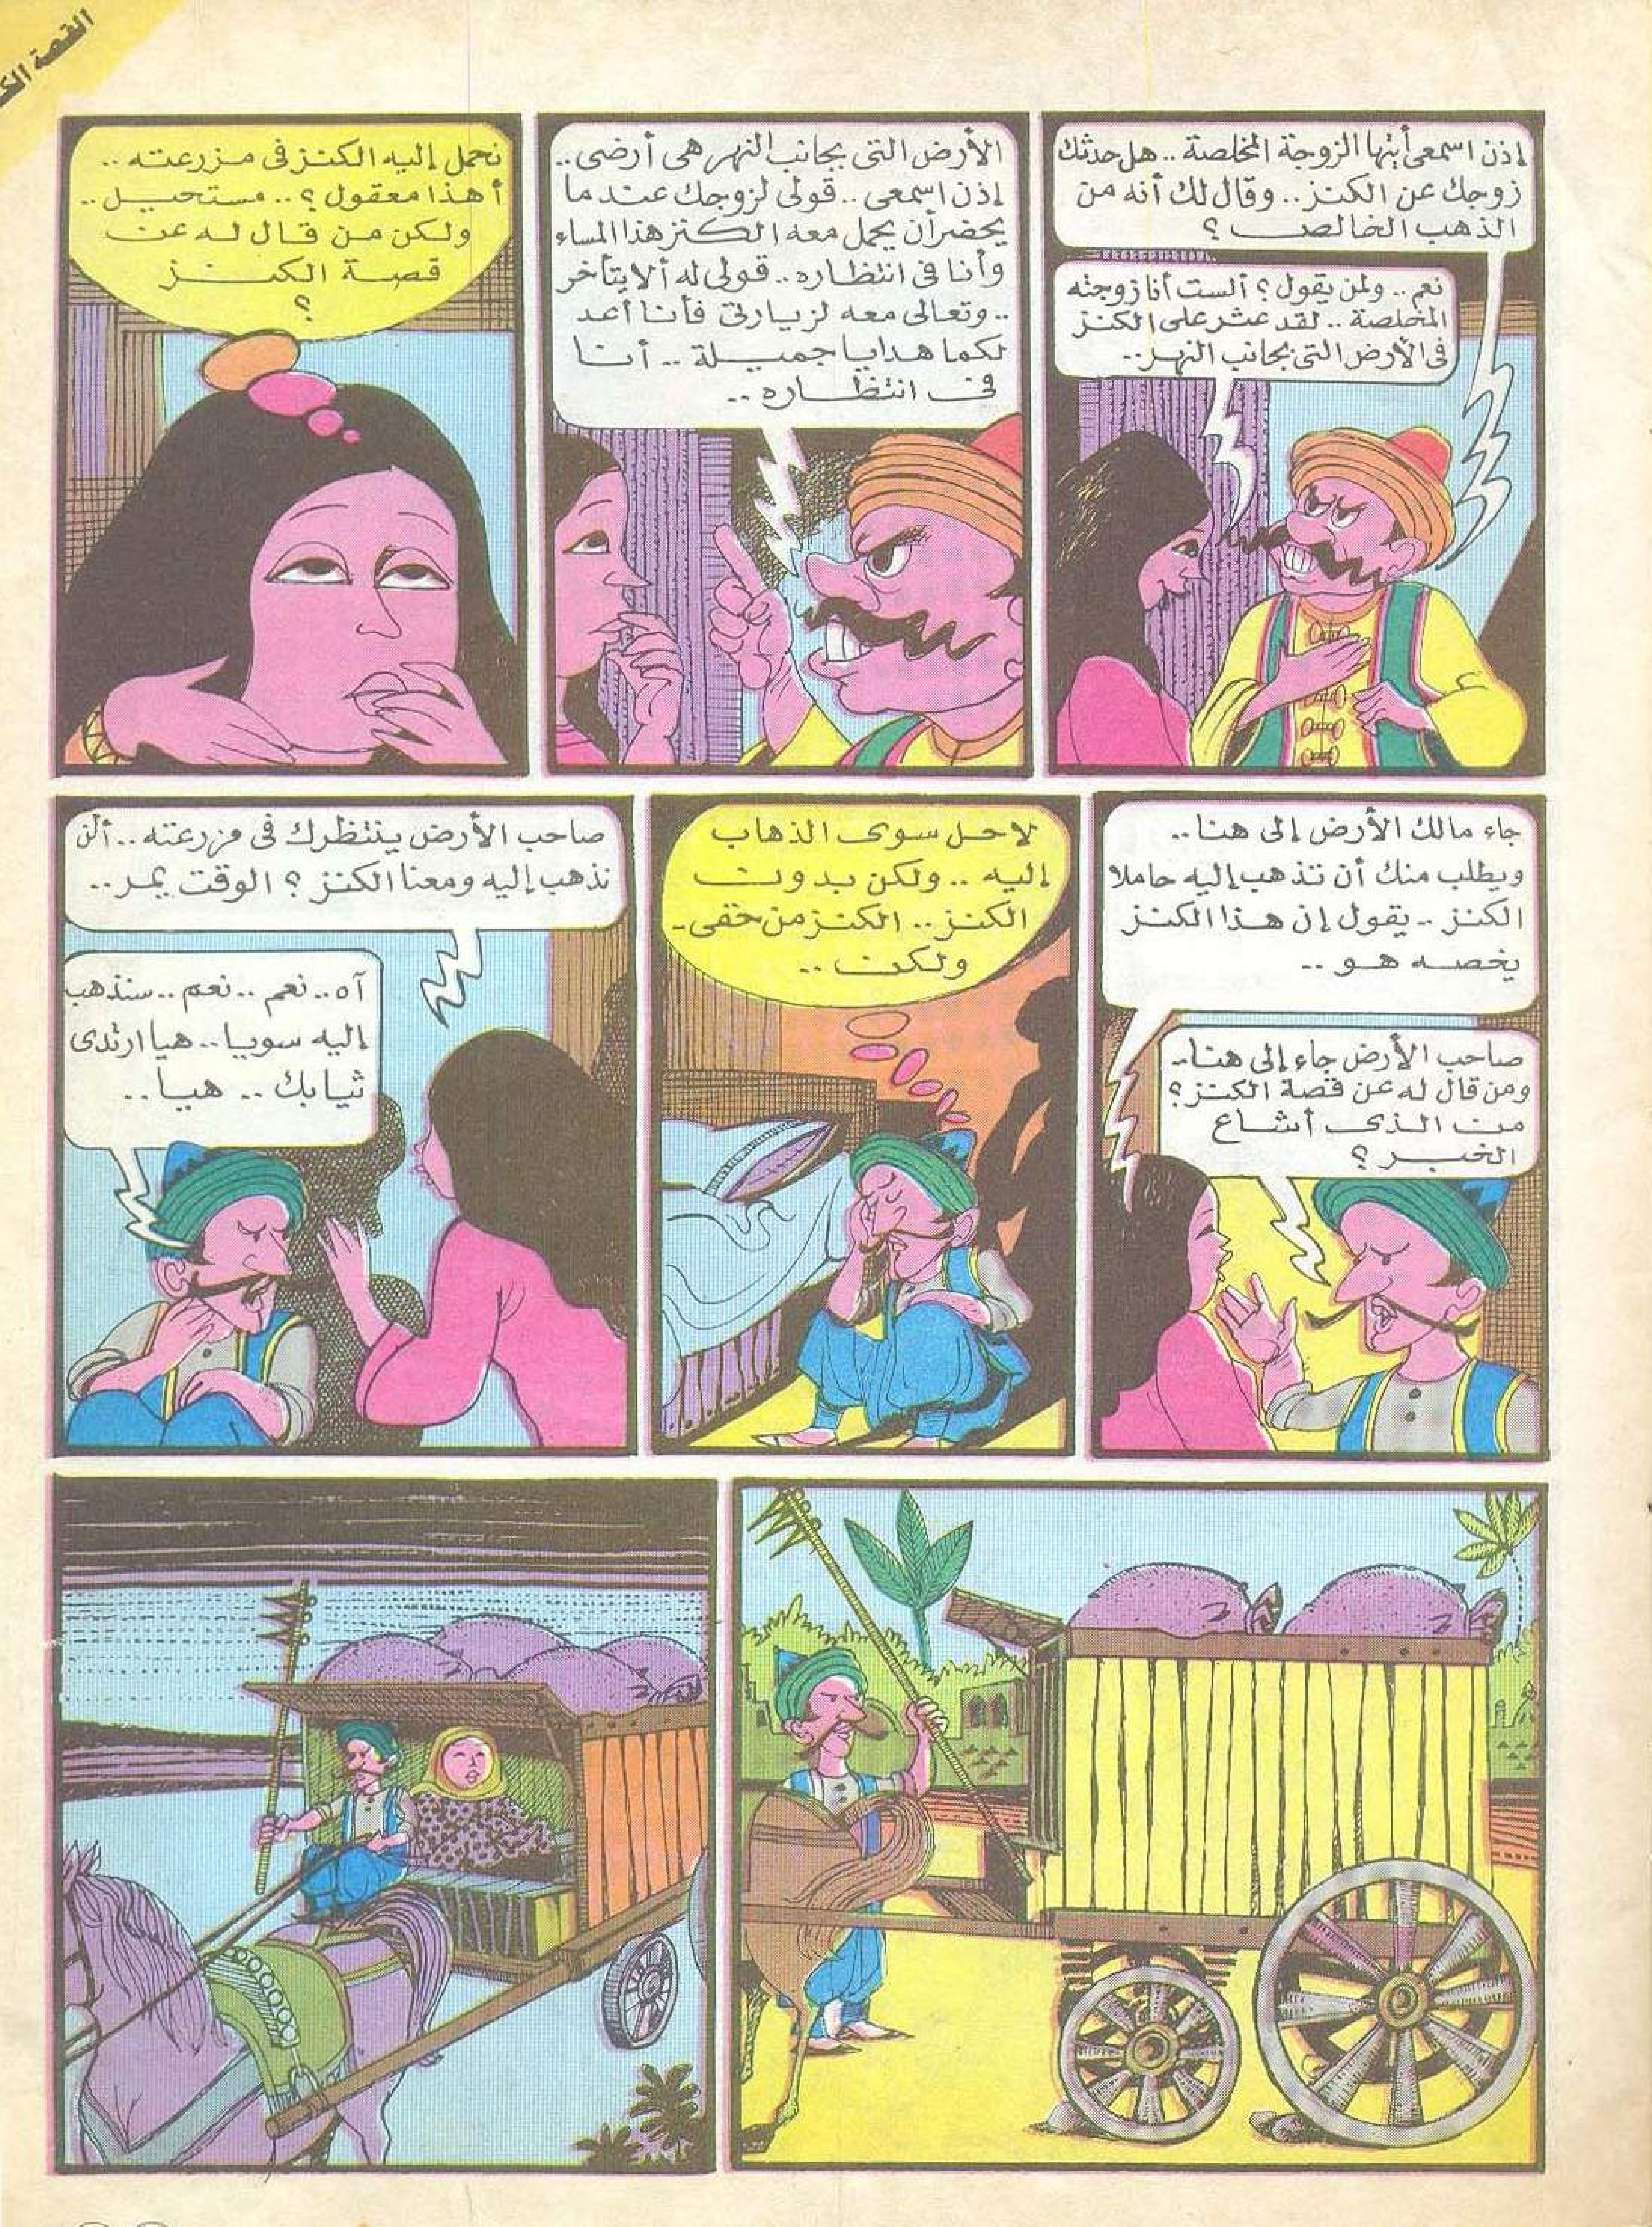 القصة
إذن اسمعى أيتها الزوجة المخلصة .. هل حدثك
زوجك عن الكنز .. وقال لك أنه من
الذهب الخالص ؟
نعم .. ولمن يقول ؟ ألست أنا زوجته
المخلصة .. لقد عثر على الكنز
فى الأرض التى بجانب النهر ..
الأرض التى بجانب النهر هى أرضى ..
إذن اسمعى .. قولى لزوجك عند ما
يحضر أن يحمل معه الكنز هذا المساء
وأنا فى انتظاره .. قولى له ألا يتأخر
.. وتعالى معه لزيارتى فأنا أعد
لكما هدايا جميلة .. أنا
فى انتظاره ..
نحمل إليه الكنز فى مزرعته ..
أهذا معقول ؟ .. مستحيل ..
ولكن من قال له عن
قصة الكنز
؟
جاء مالك الأرض إلى هنا ..
ويطلب منك أن تذهب إليه حاملا
الكنز .. يقول إن هذا الكنز
يخصه هو ..
صاحب الأرض جاء إلى هنا ..
ومن قال له عن قصة الكنز ؟
من الذى أشاع
الخبر ؟
لا حل سوى الذهاب
إليه .. ولكن بدون
الكنز .. الكنز من حقى ..
ولكن ..
صاحب الأرض ينتظرك فى مزرعته .. ألن
نذهب إليه ومعنا الكنز ؟ الوقت يمر ..
آه .. نعم .. نعم .. سنذهب
إليه سويا .. هيا ارتدى
ثيابك .. هيا ..